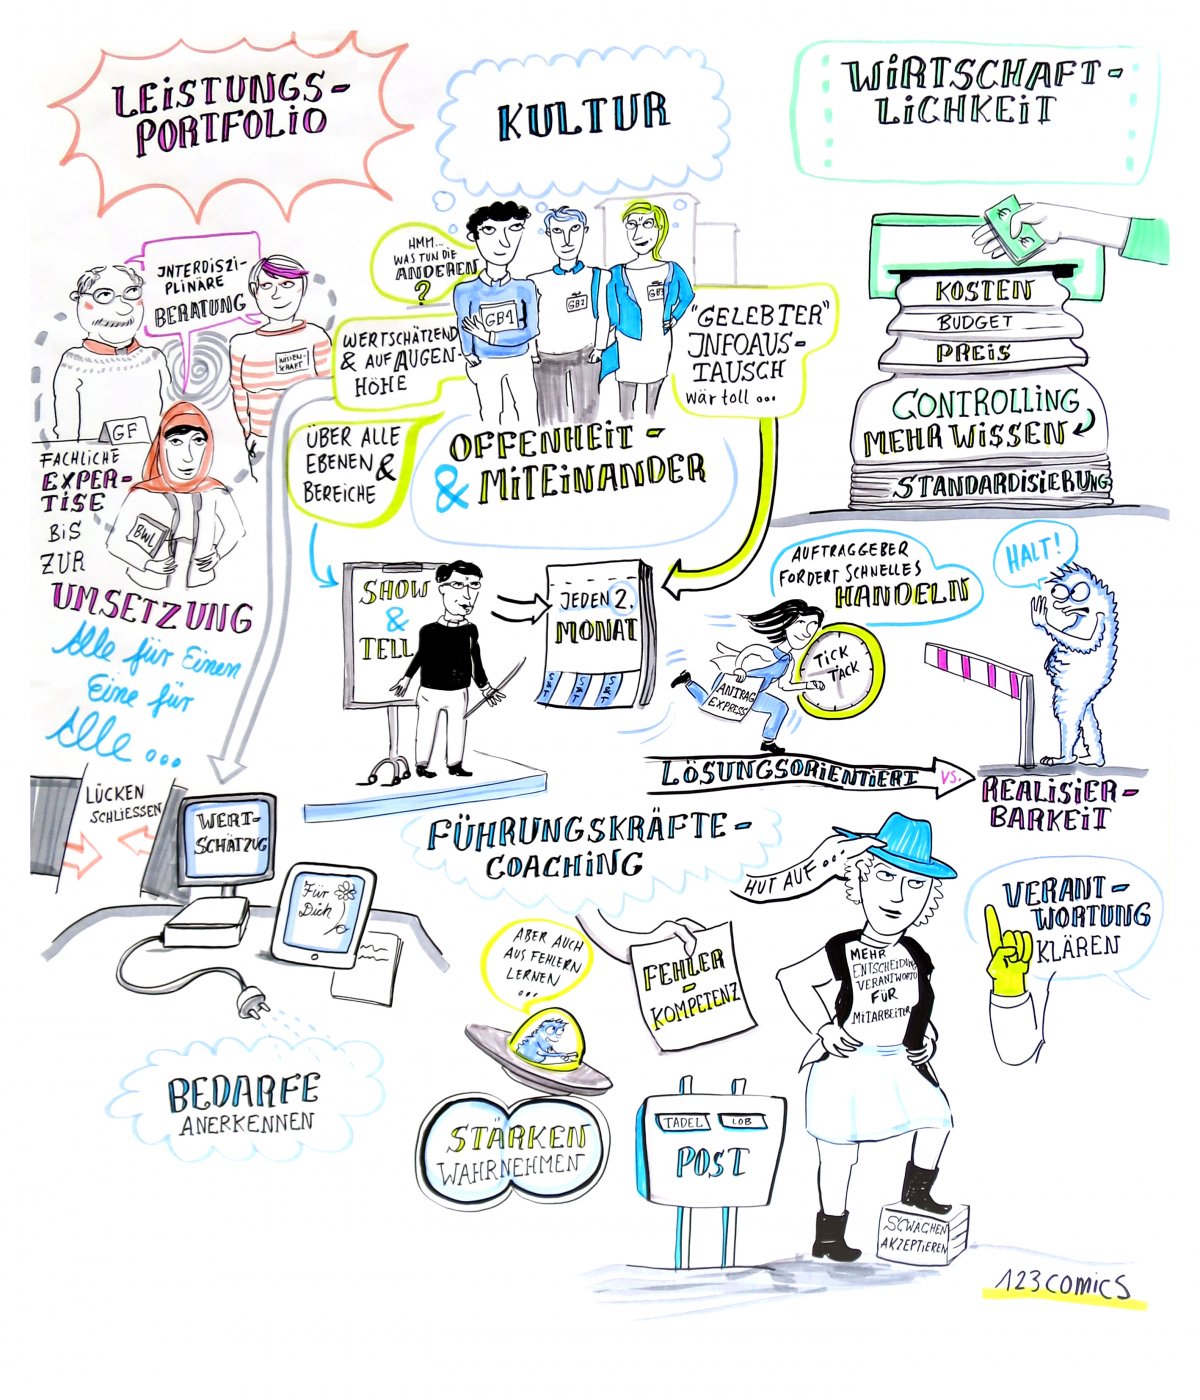 LEISTUNGS-
PORTFOLIO
INTERDISZI-
PLINÄRE
BERATUNG
WISSEN-
SCHAFT
GF
BWL
FACHLICHE
EXPER-
TISE
BIS
ZUR
UMSETZUNG
Alle für Einen
Eine für
Alle ...
KULTUR
HMM...
WAS TUN DIE
ANDEREN
?
GB1
GB2
GB3
WERTSCHÄTZEND
& AUF AUGEN-
HÖHE
"GELEBTER"
INFOAUS-
TAUSCH
wär toll ...
ÜBER ALLE
EBENEN &
BEREICHE
OFFENHEIT -
& MITEINANDER
SHOW
&
TELL
JEDEN 2.
MONAT
S&T
S&T
S&T
WIRTSCHAFT-
LICHKEIT
€
€
KOSTEN
BUDGET
PREIS
CONTROLLING
MEHR WISSEN
STANDARDISIERUNG
AUFTRAGGEBER
FORDERT SCHNELLES
HANDELN
TICK
TACK
ANTRAG
EXPRESS
HALT!
LÖSUNGSORIENTIERT
VS.
REALISIER-
BARKEIT
LÜCKEN
SCHLIESSEN
WERT-
SCHÄTZUG
Für
Dich
BEDARFE
ANERKENNEN
FÜHRUNGSKRÄFTE-
COACHING
ABER AUCH
AUS FEHLERN
LERNEN
...
FEHLER
-
KOMPETENZ
STÄRKEN
WAHRNEHMEN
TADEL
LOB
POST
HUT AUF ...
MEHR
ENTSCHEIDUNG
VERANTWORTG
FÜR
MITARBEITER
SCWÄCHEN
AKZEPTIEREN
VERANT-
WORTUNG
KLÄREN
123comics